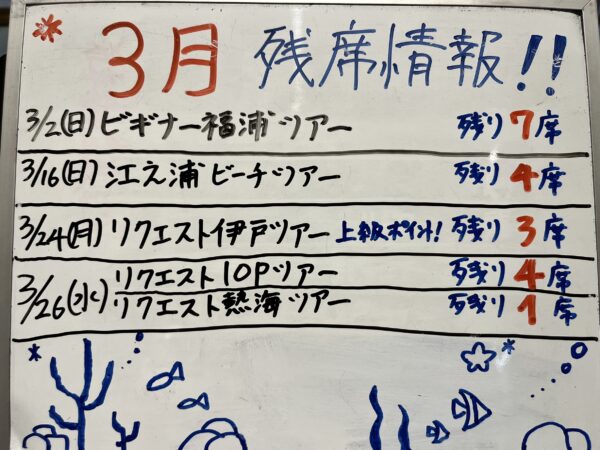 3月 残席情報!!
3/2(日)ビギナー福浦ツアー 残り7席
3/16(日)江之浦ビーチツアー 残り4席
3/24(月)リクエスト伊戸ツアー 上級ポイント! 残り3席
3/26(水)リクエストIOPツアー 残り4席
リクエスト熱海ツアー 残り1席